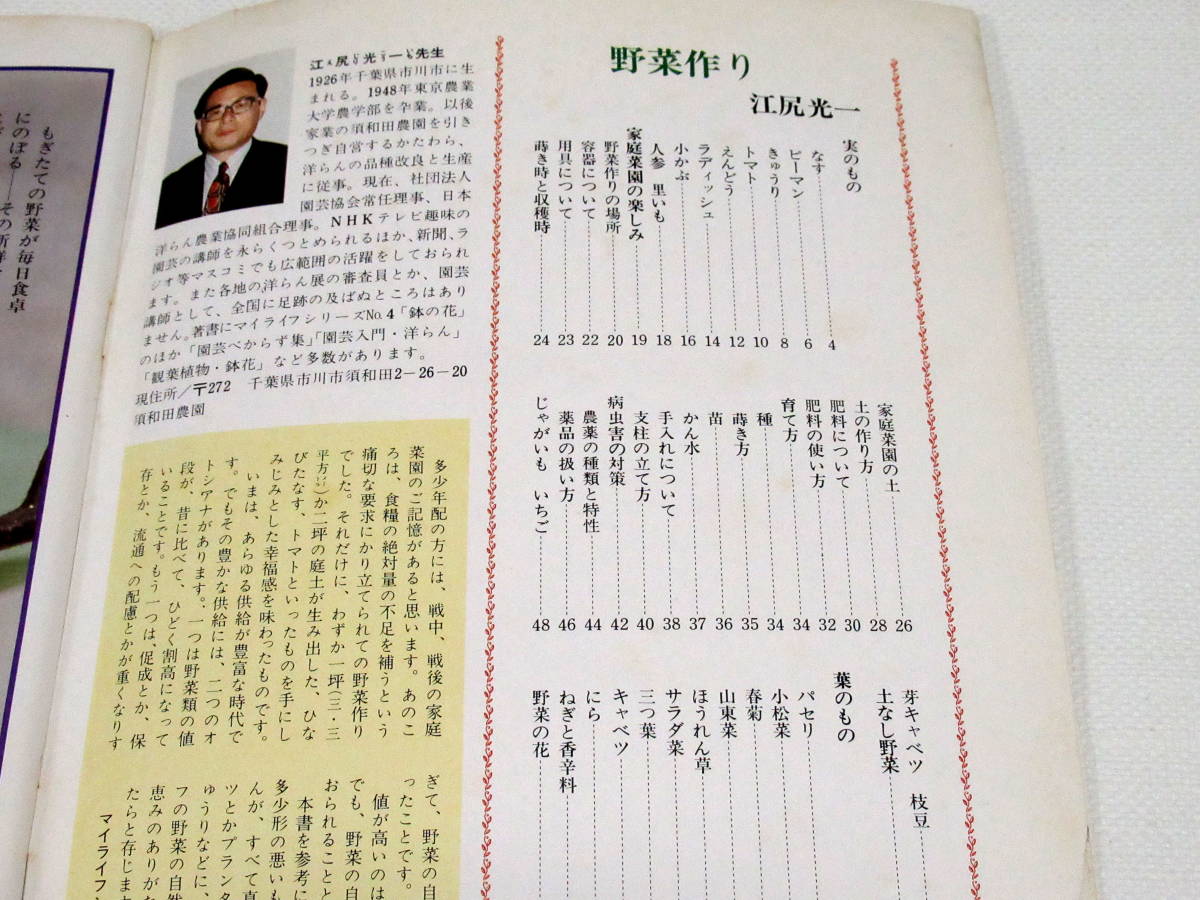 野菜作り
江尻光一
実のもの
なす 4
ピーマン 6
きゅうり 8
トマト 10
えんどう 12
ラディッシュ 14
小かぶ 16
人参 里いも 18
家庭菜園の楽しみ 19
野菜作りの場所 20
容器について 22
用具について 23
蒔き時と収穫時 24
家庭菜園の土 26
土の作り方 28
肥料について 30
肥料の使い方 32
育て方 34
種 34
蒔き方 35
苗 36
かん水 37
手入れについて 38
支柱の立て方 40
病虫害の対策 42
農薬の種類と特性 44
薬品の扱い方 46
じゃがいも いちご 48
芽キャベツ 枝豆
土なし野菜
葉のもの
パセリ
小松菜
春菊
山東菜
ほうれん草
サラダ菜
三つ葉
キャベツ
にら
ねぎと香辛料
野菜の花
江尻光一先生
1926年千葉県市川市に生
まれる。1948年東京農業
大学農学部を卒業。以後
家業の須和田農園を引き
つぎ自営するかたわら、
洋らんの品種改良と生産
に従事。現在、社団法人
園芸協会常任理事、日本
洋らん農業協同組合理事。NHKテレビ趣味の
園芸の講師を永らくつとめられるほか、新聞、ラ
ジオ等マスコミでも広範囲の活躍をしておられ
ます。また各地の洋らん展の審査員とか、園芸
講師として、全国に足跡の及ばぬところはあり
ません。著書にマイライフシリーズNo.4「鉢の花」
のほか「園芸べからず集」「園芸入門・洋らん」
「観葉植物・鉢花」など多数があります。
現住所/〒272 千葉県市川市須和田2-26-20
須和田農園
多少年配の方には、戦中、戦後の家庭
菜園のご記憶があると思います。あのこ
ろは、食糧の絶対量の不足を補うという
痛切な要求にかり立てられての野菜作り
でした。それだけに、わずか一坪(三・三
平方㍍)か二坪の庭土が生み出した、ひな
びたなす、トマトといったものを手にし
みじみとした幸福感を味わったものです。
いまは、あらゆる供給が豊富な時代で
す。でもその豊かな供給には、二つのオ
トシアナがあります。一つは野菜類の値
段が、昔に比べて、ひどく割高になって
いることです。もう一つは、促成とか、保
存とか、流通への配慮とかが重くなりす
ぎて、野菜の自
ったことです。
値が高いのは
でも、野菜の自
おられることと
本書を参考に
多少形の悪いも
んが、すべて真
ツとかプランタ
ゅうりなどに、
フの野菜の自然
恵みのありがた
たらと存じま
マイライフ
もぎたての野菜が毎日食卓
にのぼる――その新鮮・